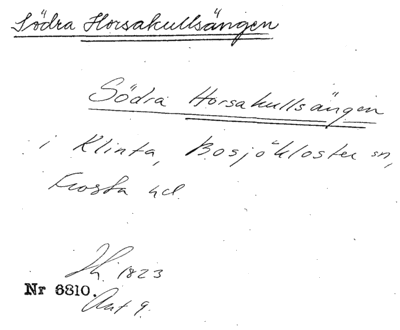 Södra Horsakullsängen
Södra Horsakullsängen
i Klinta, Bosjökloster sn,
Frosta hd.
1823
Nr 6810.
Akt 9.